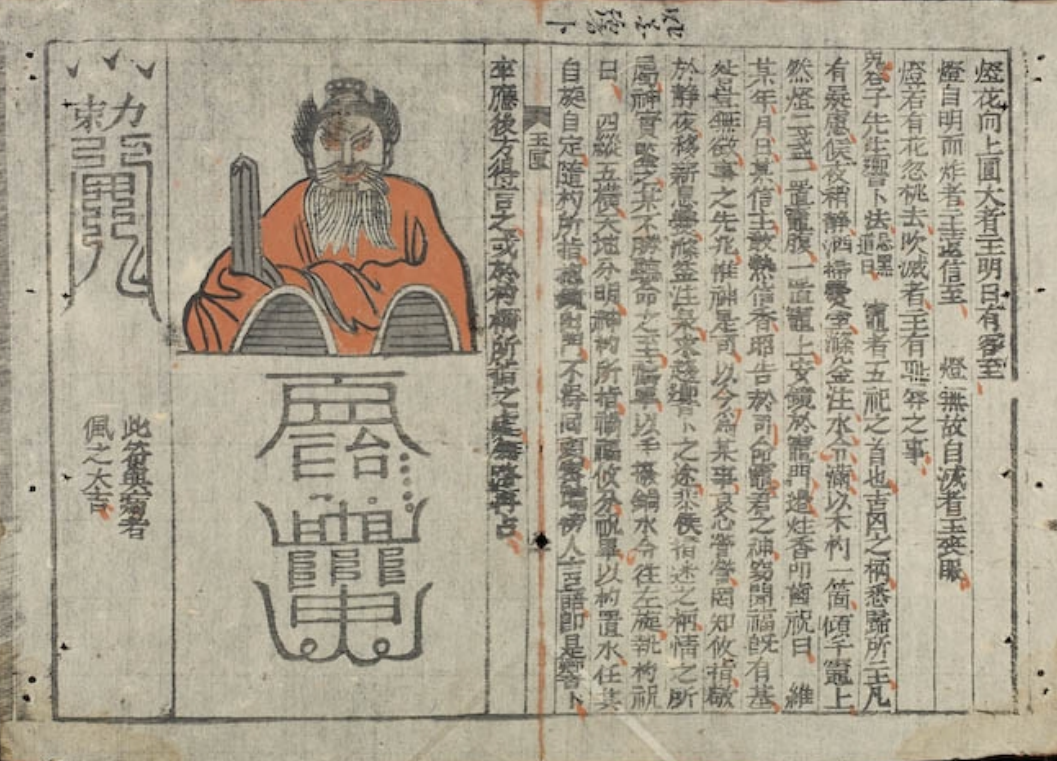 燈花向上圓大者主明日有客至
燈自明而炸者主遠信至　燈無故自滅者主喪服
燈若有花忽挑去吹滅者主有非辱之事
鬼谷子先生響卜法忌黑道日　竈者五祀之首也吉凶之柄悉歸所主凡
有疑慮候夜稍靜洒掃爨室滌釜注水令滿以木杓一箇傾于竈上
然燈二盞一置竈腹一置竈上安鏡於竈門邊炷香叩齒祝曰　維
某年月日某信主敬爇信香昭告於司命竈君之神竊聞福既有基
咎豈無徵事之先兆惟神是司以今為某事衷心營營罔知攸指敬
於靜夜移新息爨滌釜注泉求響卜之途恭俟指迷之柄情之所
屬神實鑒之某不勝聽命之至禱畢以手撥鍋水令往左旋執杓祝
曰　四縱五橫天地分明神杓所指禍福攸分祝畢以杓置水任其
自旋自定隨杓所指抱鏡出門不得回顧密聽傍人言語即是響卜
玉匣
卒應後方得言之或於杓柄所指之處無路再占
此符與病者
佩之大吉